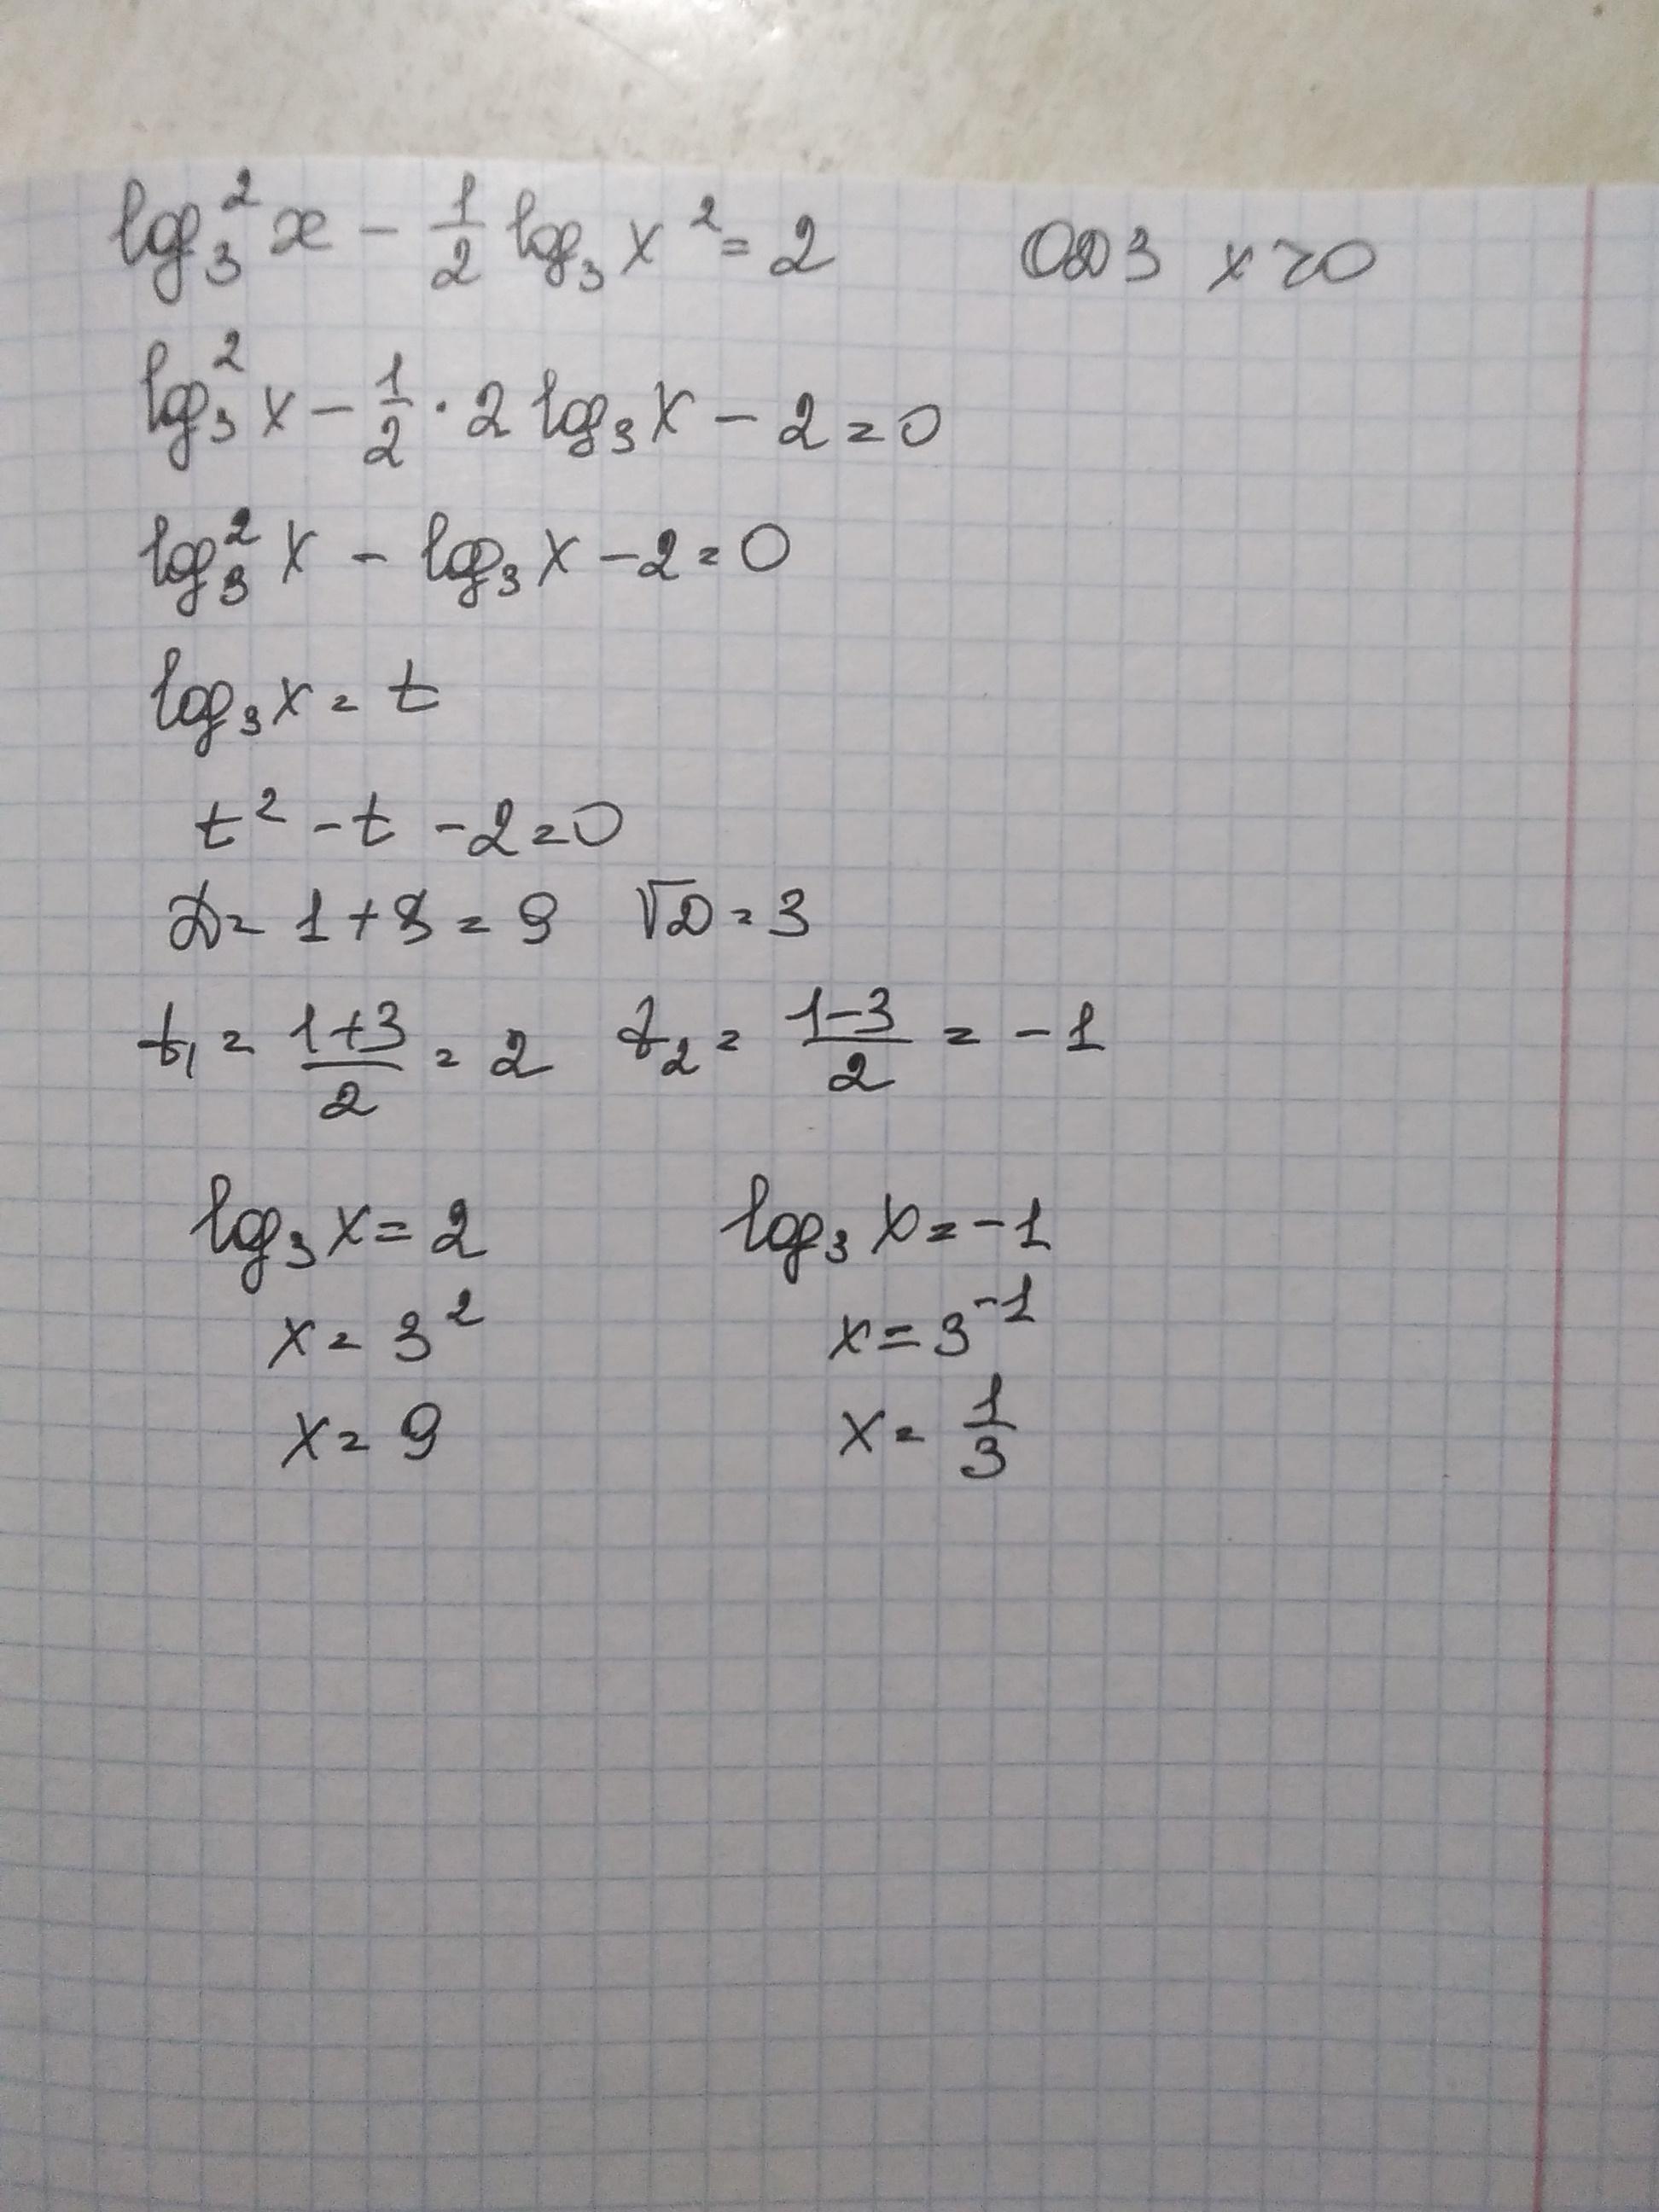 log₃² x − 1/2 log₃ x² = 2 ОДЗ x > 0
log₃² x − 1/2 · 2 log₃ x − 2 = 0
log₃² x − log₃ x − 2 = 0
log₃ x = t
t² − t − 2 = 0
D = 1 + 8 = 9 √D = 3
t₁ = (1+3)/2 = 2 t₂ = (1−3)/2 = −1
log₃ x = 2 log₃ x = −1
x = 3² x = 3⁻¹
x = 9 x = 1/3